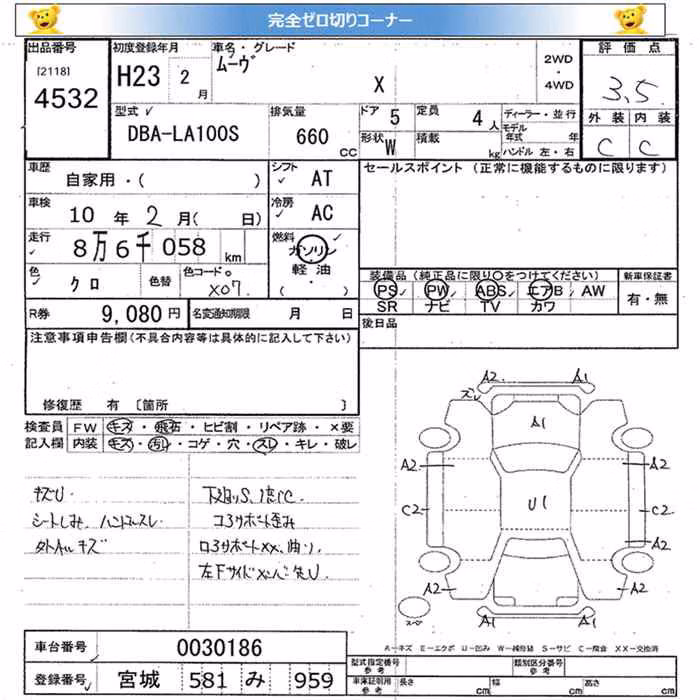 完全ゼロ切りコーナー
出品番号 初度登録年月 車名・グレード 評価点
[2118] 4532 H23 2月 ムーヴ X 2WD・4WD 3.5
型式 DBA-LA100S 排気量 660cc ドア 5 定員 4人 ディーラー・並行 外装 内装
形状 W 積載 kg モデル年式 年 ハンドル 左・右 C C
車歴 自家用・( ) シフト AT セールスポイント (正常に機能するものに限ります)
車検 10年2月( 日) 冷房 AC
走行 8万6千058km 燃料 ガソリン 軽油・( )
色 クロ 色替 色コード X07 装備品(純正品に限り○をつけてください) 新車保証書
PS PW ABS エアB AW 有・無
SR ナビ TV カワ
R券 9,080円 名変通知期限 月 日 後日品
注意事項申告欄(不具合内容等は具体的に記入して下さい)
修復歴 有 〔箇所 〕
検査員 FW キズ・飛石・ヒビ割・リペア跡・×要
記入欄 内装 キズ・汚れ・コゲ・穴・スレ・キレ・破レ
キズU
シートしみ、ハンドルスレ
外Aルキズ
下廻りS、1部C
コアサポート歪み
A2 A1
ズレ
A1
A2 A2
U1
C2 C2
A2
A2 A2
A1 A1
スペア
車台番号 0030186
A-キズ E-エクボ U-凹み W-補修跡 S-サビ C-腐食 XX-交換済
登録番号 宮城 581 み 959
型式指定番号 参考 類別区分番号 参考
車庫証明用 参考 長さ cm 幅 cm 高さ cm